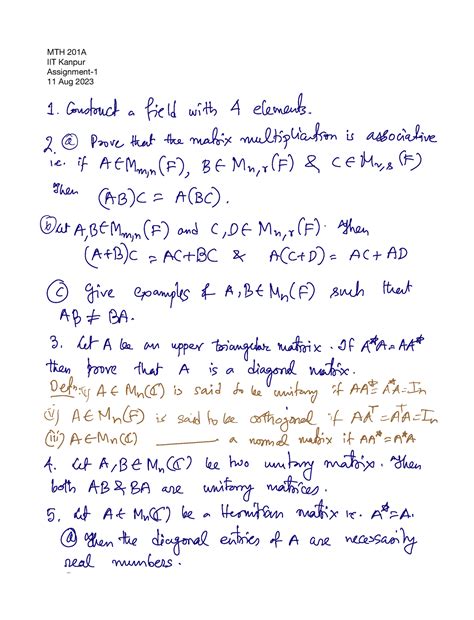 MTH 201A
IIT Kanpur
Assignment-1
11 Aug 2023
1. Construct a field with 4 elements.
2. (a) Prove that the matrix multiplication is associative
i.e. if A∈M_{m,n}(F), B∈M_{n,r}(F) & C∈M_{r,s}(F)
then (AB)C = A(BC).
(b) Let A,B∈M_{m,n}(F) and C,D∈M_{n,r}(F). Then
(A+B)C = AC+BC & A(C+D) = AC+AD
(c) Give examples of A,B∈M_n(F) such that
AB ≠ BA.
3. Let A be an upper triangular matrix. If A*A=AA*
then prove that A is a diagonal matrix.
Defn: (i) A∈M_n(ℂ) is said to be unitary if AA*=A*A=I_n
(ii) A∈M_n(F) is said to be orthogonal if AA^T=A^TA=I_n
(iii) A∈M_n(ℂ) ——— a normal matrix if AA*=A*A
4. Let A,B∈M_n(ℂ) be two unitary matrix. Then
both AB & BA are unitary matrices.
5. Let A∈M_n(ℂ) be a Hermitian matrix i.e. A*=A.
(a) Then the diagonal entries of A are necessarily
real numbers.